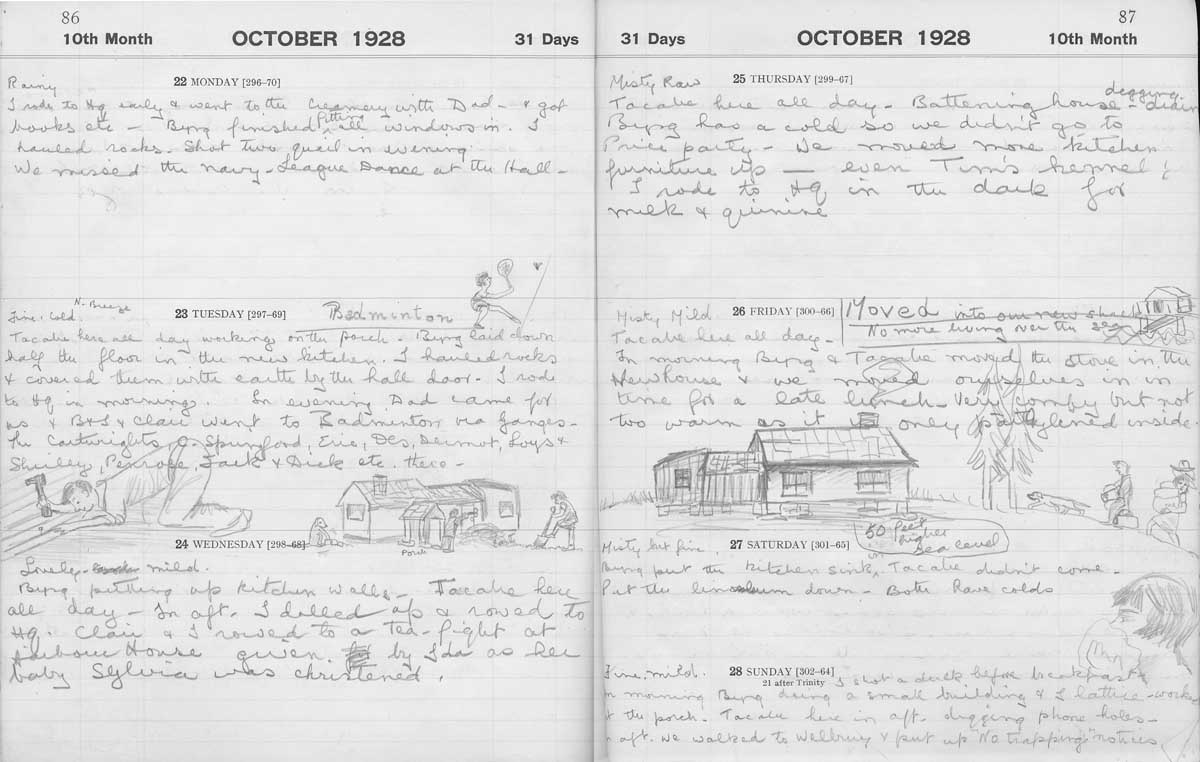 86
10th Month OCTOBER 1928 31 Days
22 MONDAY [296–70]
Rainy
I rode to Hq early & went to the Creamery with Dad - & got
books etc - Byng finished fitting all windows in. I
hauled rocks. Shot two quail in evening
We missed the navy-League Dance at the Hall -
23 TUESDAY [297–69]
Fine. Cold. N. Breeze
Badminton
here all day working on the porch. Byng laid down
half the floor in the new kitchen. I hauled rocks
& covered them with earth by the hall door. I rode
to Hq in morning. In evening Dad came for
us & & Clair went to Badminton via Ganges -
The Cartwrights, Spurnford, Eric, Des, Dermot, Loys &
Shirley, Penrose, Jack & Dick etc. there -
Porch
24 WEDNESDAY [298–68]
Lovely - mild.
Byng putting up kitchen walls - here
all day - In aft. I dolled up & rowed to
Hq. Clair & I rowed to a Tea-fight at
Harbour House given by Ida as her
baby Sylvia was christened.
87
31 Days OCTOBER 1928 10th Month
25 THURSDAY [299–67]
Misty Raw
here all day - Battening house - digging
Byng has a cold so we didn't go to
Price party - We moved more kitchen
furniture up - even Tim's kennel!
I rode to Hq in the dark for
milk & quinine
26 FRIDAY [300–66]
Misty Mild
Moved into our new shack
No more living over the sea
here all day -
In morning Byng & moved the stove in the
New house & we moved ourselves in in
time for a late lunch - Very comfy but not
too warm as it only partly lined inside
50 feet higher
Sea level
27 SATURDAY [301–65]
Misty but fine.
Byng put the kitchen sink, didn't come -
Put the linoleum down - Both have colds
28 SUNDAY [302–64]
21 after Trinity
Fine. mild. I shot a duck before breakfast
In morning Byng doing a small building & I lattice-work
at the porch - here in aft. digging phone holes -
aft. we walked to Welbury & put up "No trapping" notices